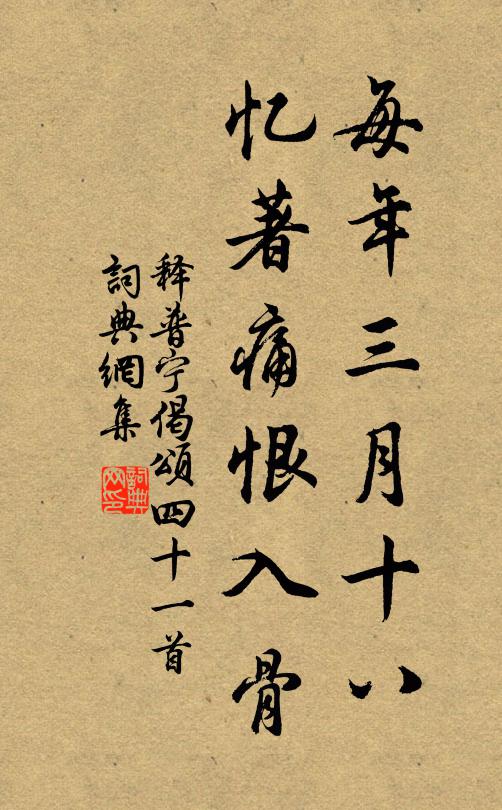 每年三月十八
忆著痛恨入骨
释普宁偈頌四十一首
詞典網集
詞典網印